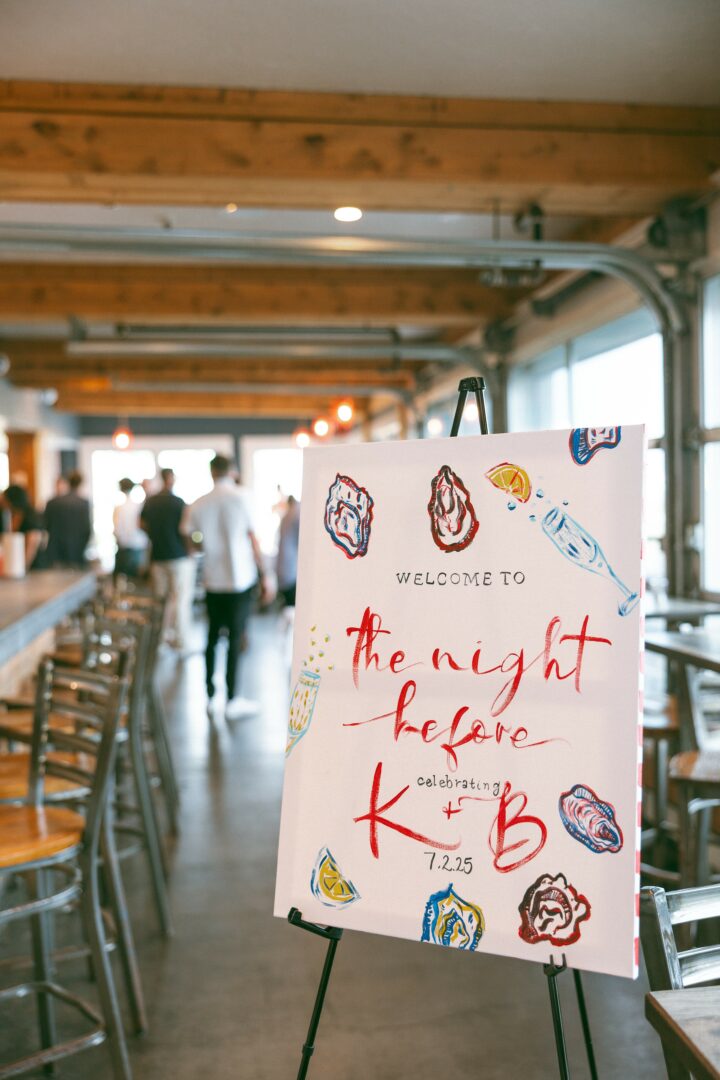 WELCOME TO
the night
before
celebrating
K + B
7.2.25